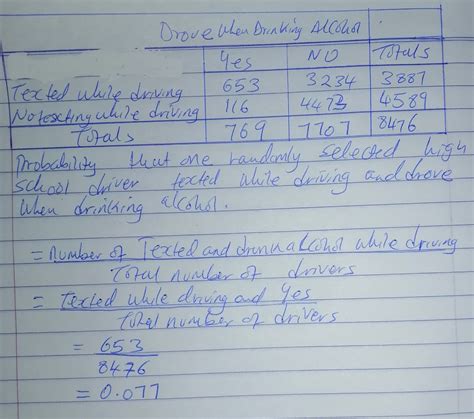 Drove When Drinking Alcohol
Yes NO Totals
Texted while driving 653 3234 3887
No texting while driving 116 4473 4589
Totals 769 7707 8476
Probability that one randomly selected high
school driver texted while driving and drove
when drinking alcohol.
= Number of Texted and drunk alcohol while driving
Total number of drivers
= Texted while driving and Yes
Total number of drivers
= 653
8476
= 0.077